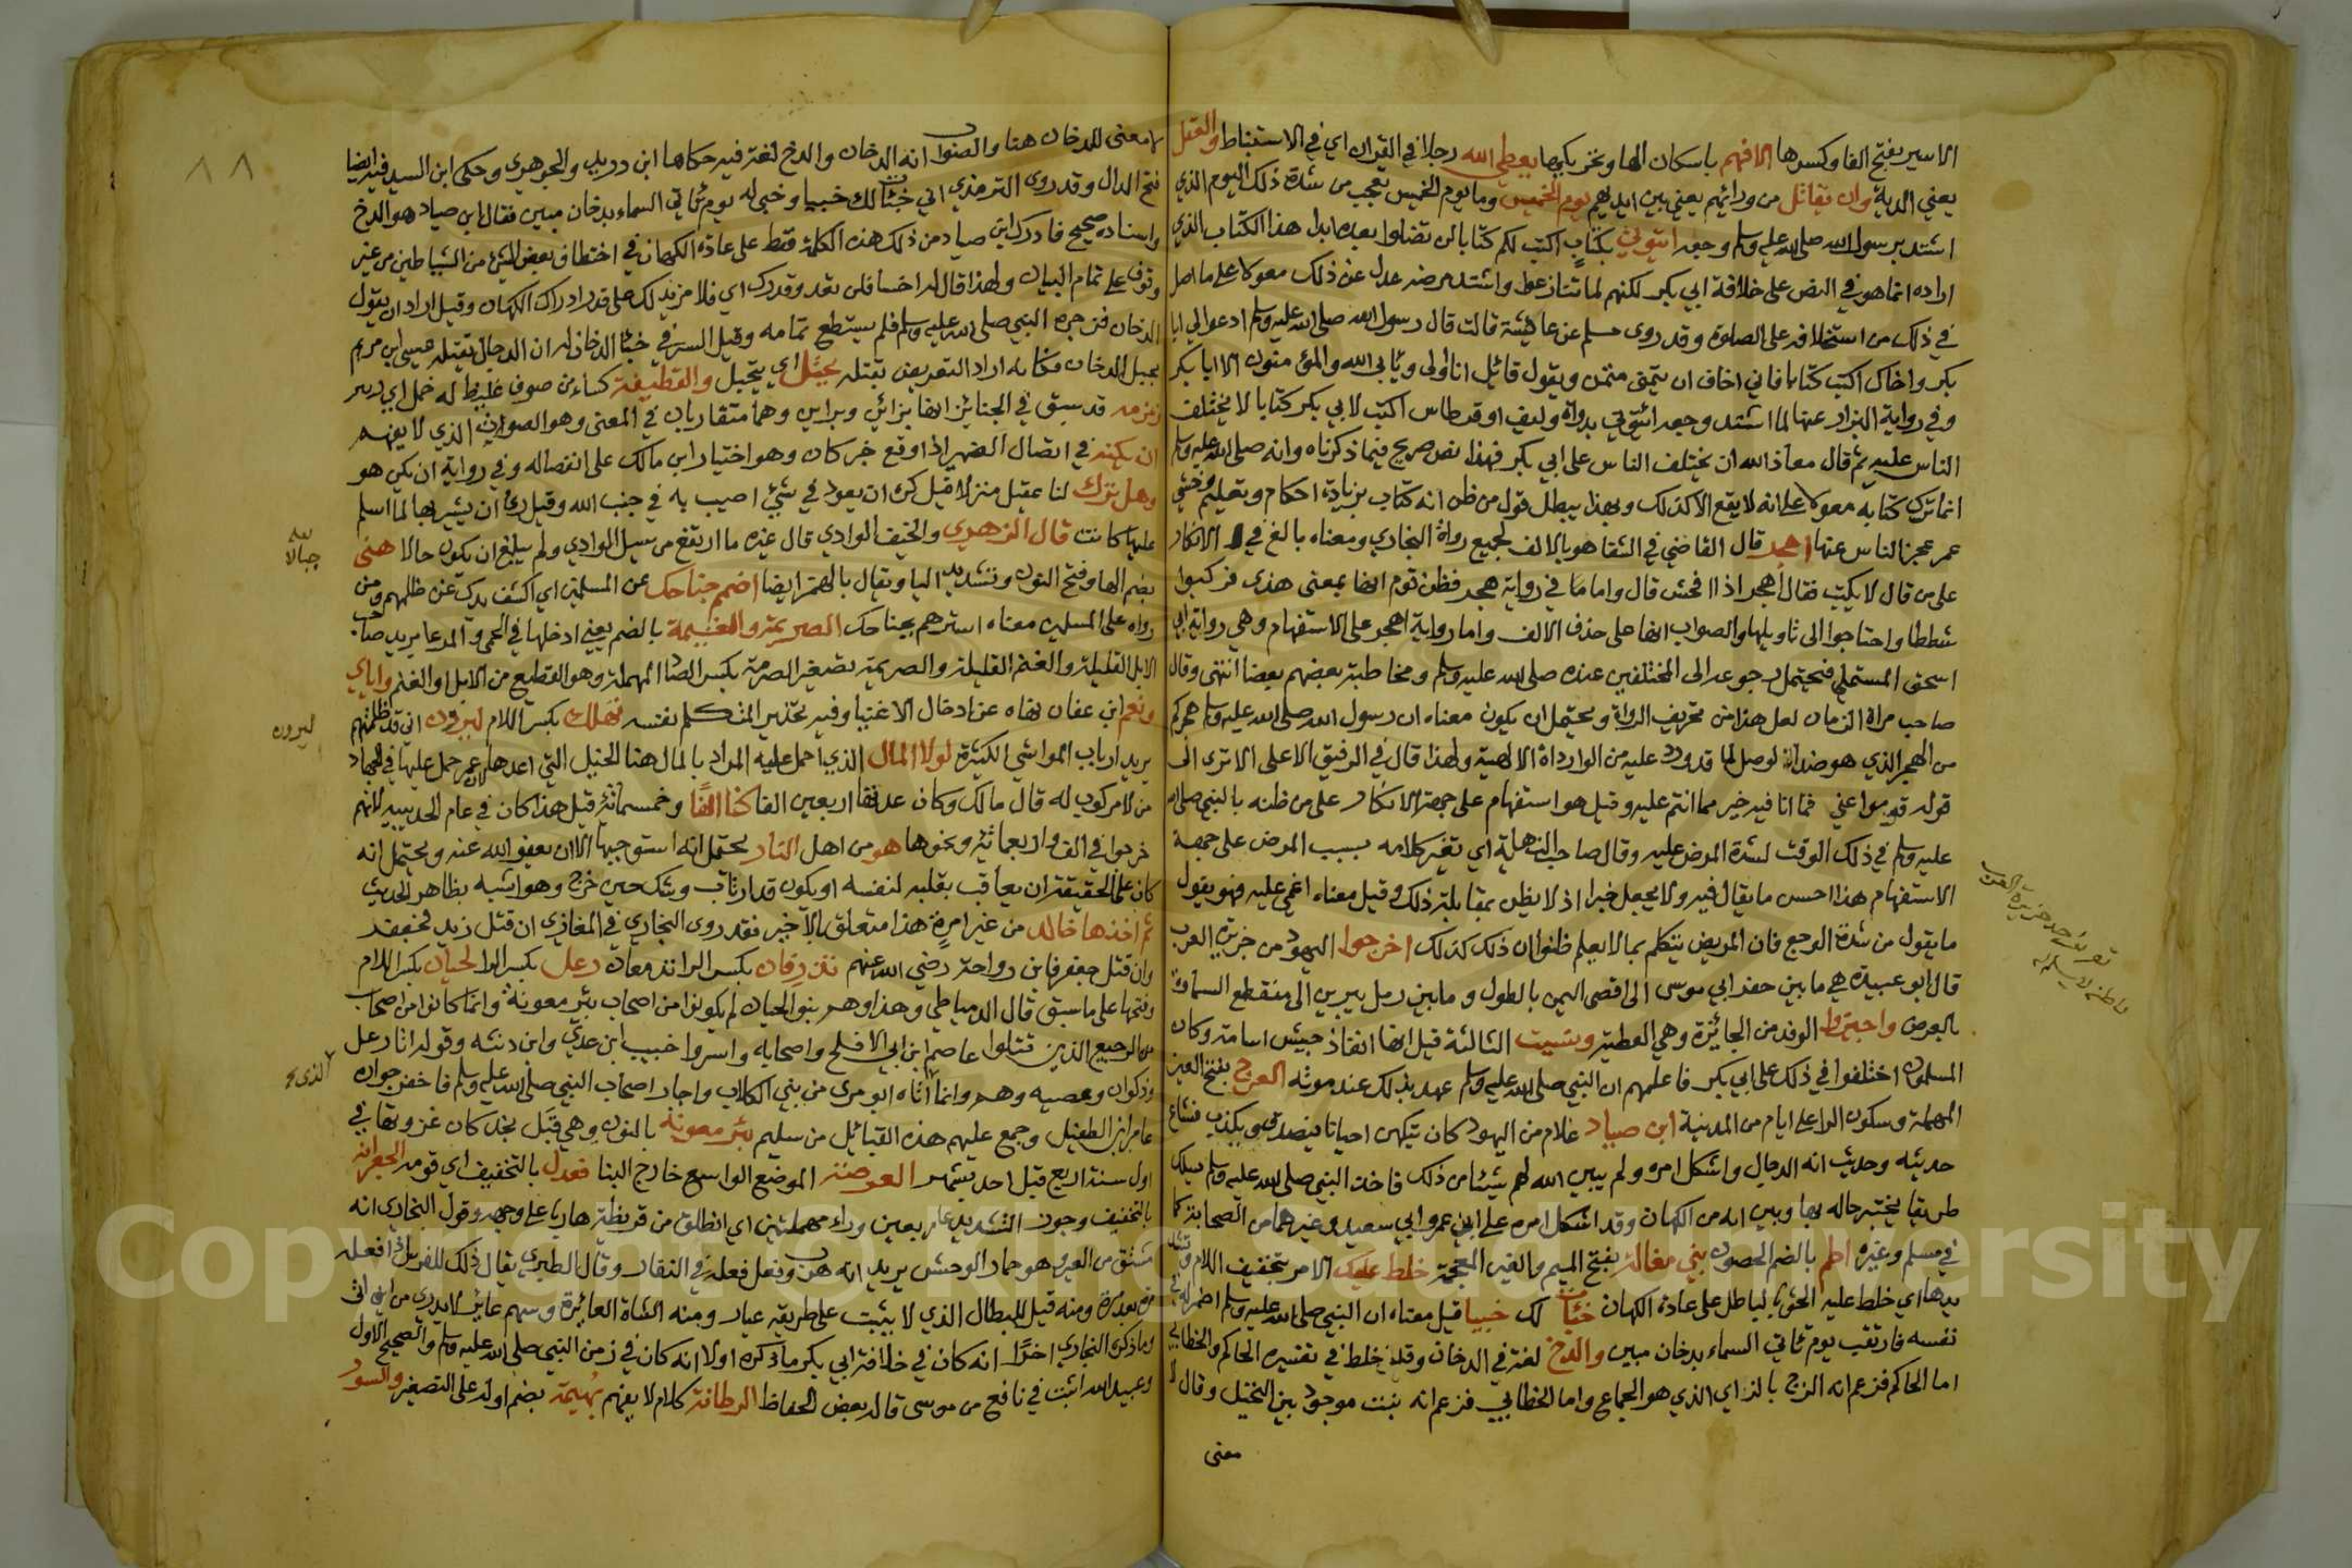 الاسير بفتح الفا وكسرها الا فهم باسكان الها وبحر بكبها يعطي الله رجلا في القران اي في الاستنباط والعقل
يعني الدية وان يقاتل من ورائهم يعني بين ايديهم يوم الخميس وما يوم الخميس تعجب من شدة ذلك اليوم الذي
اشتد برسول الله صلى الله عليه وسلم وجعه ائتوني بكتاب اكتب لكم كتابا لن تضلوا بعده ابدا هذا الكتاب الذي
اراده انما هو في النص على خلافة ابي بكر لكنهم لما تنازعوا واشتد مرضه عدل عن ذلك معولا على ما اصل
في ذلك من استخلافه على الصلوة وقد روى مسلم عن عائشة قالت قال رسول الله صلى الله عليه وسلم ادعوا لي ابا
بكر واخاك اكتب كتابا فاني اخاف ان يتمنى متمن ويقول قائل انا اولى ويابى الله والمؤمنون الا ابا بكر
وفي رواية البزار عنها لما اشتد وجعه ائتوني بدواة وليف او قرطاس اكتب لابي بكر كتابا لا يختلف
الناس عليه ثم قال معاذ الله ان يختلف الناس على ابي بكر فهذا نص صريح فيما ذكرناه وانه صلى الله عليه وسلم
انما ترك كتابه معولا على انه لا يقع الا كذلك وبهذا يبطل قول من ظن انه كتاب بزيادة احكام وتعليم وخشي
عمر عجز الناس عنها اهجر قال القاضي في الشفا هو بالالف لجميع رواة البخاري ومعناه بالغ في الانكار
على من قال لا يكتب فقال أهجر اذا افحش قال واما ما في رواية هجر فظن قوم انها بمعنى هذى فركبوا
شططا واحتاجوا الى تاويلها والصواب انها على حذف الالف واما رواية اهجر على الاستفهام وهي رواية ابي
اسحق المستملي فتحتمل رجوعه الى المختلفين عنده صلى الله عليه وسلم ومخاطبة بعضهم بعضا انتهى وقال
صاحب مراة الزمان لعل هذا من تحريف الرواة ويحتمل ان يكون معناه ان رسول الله صلى الله عليه وسلم هجركم
من الهجر الذي هو ضد الوصل لما قد ورد عليه من الواردات الالهية ولهذا قال في الرفيق الاعلى الا ترى الى
قوله قوموا عني فما انا فيه خير مما انتم عليه وقيل هو استفهام على جهة الانكار على من ظنه بالنبي صلى الله
عليه وسلم في ذلك الوقت لشدة المرض عليه وقال صاحب النهاية اي تغير كلامه بسبب المرض على جهة
الاستفهام هذا احسن ما يقال فيه ولا يجعل خبرا اذ لا يظن بمقابلته ذلك وقيل معناه اغمي عليه فهو يقول
ما يقول من شدة الوجع فان المريض يتكلم بما لا يعلم ظنوا ان ذلك كذلك اخرجوا اليهود من جزيرة العرب
قال ابو عبيدة هي ما بين حفر ابي موسى الى اقصى اليمن بالطول وما بين رمل يبرين الى منقطع السماوة
بالعرض واجيزوا الوفد من الجائزة وهي العطية ونسيت الثالثة قيل انها انفاذ جيش اسامة وكان
المسلمون اختلفوا في ذلك على ابي بكر فاعلمهم ان النبي صلى الله عليه وسلم عهد بذلك عند موته العرج بفتح العين
المهملة وسكون الرا على ايام من المدينة ابن صياد غلام من اليهود كان يتكهن احيانا فيصدق ويكذب فشاع
حديثه وحديث انه الدجال واشكل امره ولم يبين الله لهم شيئا من ذلك فاخذ النبي صلى الله عليه وسلم يسلك
طريقا يختبر حاله بها وبين انه من الكهان وقد اشكل امره على ابن عمر وابي سعيد وغيرهما من الصحابة كما
في مسلم وغيره اطم بالضم الحصون بني مغالة بفتح الميم والغين المعجمة خلط عليك الامر بتخفيف اللام وتشد
يدها اي خلط عليه الحق بالباطل على عادة الكهان خبأت لك خبيا قيل معناه ان النبي صلى الله عليه وسلم اضمر له في
نفسه فارتقب يوم تاتي السماء بدخان مبين والدخ لغة في الدخان وقد خلط في تفسيره الحاكم والخطابي
اما الحاكم فزعم انه الزخ بالزاي الذي هو الجماع واما الخطابي فزعم انه نبت موجود بين النخيل وقال لا
معنى
تعريف حد جزيرة العرب
لا معنى للدخان هنا والصواب انه الدخان والدخ لغة فيه حكاها ابن دريد والجوهري وحكى ابن السيد فيه ايضا
فتح الدال وقد روى الترمذي اني خبأت لك خبيا وخبى له يوم تاتي السماء بدخان مبين فقال ابن صياد هو الدخ
واسناده صحيح فادرك ابن صياد من ذلك هذه الكلمة فقط على عادة الكهان في اختطاف بعض الشئ من الشياطين من غير
وقوف على تمام البيان ولهذا قال له اخسا فلن تعد وقدرك اي فلا مزيد لك على قدر ادراك الكهان وقيل اراد ان يقول
الدخان فزجره النبي صلى الله عليه وسلم فلم يستطع تمامه وقيل السر في خبأ الدخان له ان الدجال يقتله عيسى ابن مريم
بجبل الدخان فكانه اراد التعريض بقتله يختل اي يتحيل والقطيفة كساء من صوف غليظ له خمل اي وبر
زمزمة قد سبق في الجنائز انها بزائين وبراين وهما متقاربان في المعنى وهو الصوت الذي لا يفهم
ان يكنه في اتصال الضمير اذا وقع خبر كان وهو اختيار ابن مالك على انفصاله وفي رواية ان يكن هو
وهل ترك لنا عقيل منزلا قيل كره ان يعود في شئ اصيب به في جنب الله وقيل رئ ان يشتريها لما اسلم
عليها كانت قال الزهري والخيف الوادي قال غيره ما ارتفع من سيل الوادي ولم يبلغ ان يكون جبالا هنى
بضم الها وفتح النون وتشديد اليا ويقال بالهمز ايضا اضمم جناحك عن المسلمين اي اكفف يدك عن ظلمهم ومن
رواه على المسلمين معناه استرهم بجناحك الصريمة والغنيمة بالضم يعني ادخلها في الحمى والمرعا يريد صاحب
الابل القليلة والغنم القليلة والصريمة تصغير الصرمة بكسر الصاد المهملة وهو القطيع من الابل او الغنم واياي
ونعم ابن عفان نهاه عن ادخال الاغنيا وفيه تحذير المتكلم نفسه تهلك بكسر اللام ليرون اني قد ظلمتهم
يريد ارباب المواشي الكثيرة لولا المال الذي احمل عليه المراد بالمال هنا الخيل التي اعدها عمر ليحمل عليها في الجهاد
من لا مركوب له قال مالك وكان عدتها اربعين الفا كنا الفا وخمسمائة قيل هذا كان في عام الحديبية لانهم
خرجوا في الف واربعمائة ونحوها هو من اهل النار يحتمل انه استوجبها الا ان يعفو الله عنه ويحتمل انه
كان على الحقيقة ان يعاقب بقلبه لنفسه او يكون قد ارتاب وشك حين خرج وهو اشبه بظاهر الحديث
ثم اخذها خالد من غير امرة هذا متعلق بالاخير فقد روى البخاري في المغازي ان قتل زيد فجعفر
وان قتل جعفر فابن رواحة رضي الله عنهم تذرفان بكسر الرا تدمعان رعل بكسر الرا لحيان بكسر اللام
وفتحها على ما سبق قال الدمياطي وهذا وهم بنو لحيان لم يكونوا من اصحاب بئر معونة وانما كانوا من اصحاب
الرجيع الذين قتلوا عاصم ابن ابي الافلح واصحابه واسروا خبيب ابن عدي وابن دثنه وقوله اتاه رعل
وذكوان وعصيه وهم وانما اتاه ابو مرى من بني الكلاب واجار اصحاب النبي صلى الله عليه وسلم فاخفر جواره
عامر ابن الطفيل وجمع عليهم هذه القبائل من سليم بئر معونة بالنون وهي قبل نجد كان غزوتها في
اول سنة اربع قبل احد بشهر العرصة الموضع الواسع خارج البنا فعدل بالتخفيف اي قومه الجعرانة
بالتخفيف وجوز التشديد عار بعين وراء مهملتين اي انطلق من قريظة هاربا على وجهه وقول البخاري انه
مشتق من العير وهو حمار الوحش يريد انه هرب وفعل فعله في النفار وقال الطبري يقال ذلك للفرس اذا فعله
مرة بعد مرة ومنه قيل للبطال الذي لا يثبت على طريقه عيار ومنه الشاة العائرة وسهم عائر لا يدرى من اين اتى
وما ذكره البخاري اخرا انه كان في خلافة ابي بكر ما ذكره اولا انه كان في زمن النبي صلى الله عليه وسلم والصحيح الاول
وعبيد الله اثبت في نافع من موسى قاله بعض الحفاظ الرطانة كلام لا يفهم بهيمة بضم اوله على التصغير والسور
٨٨
جبالا
ليرون
الذي